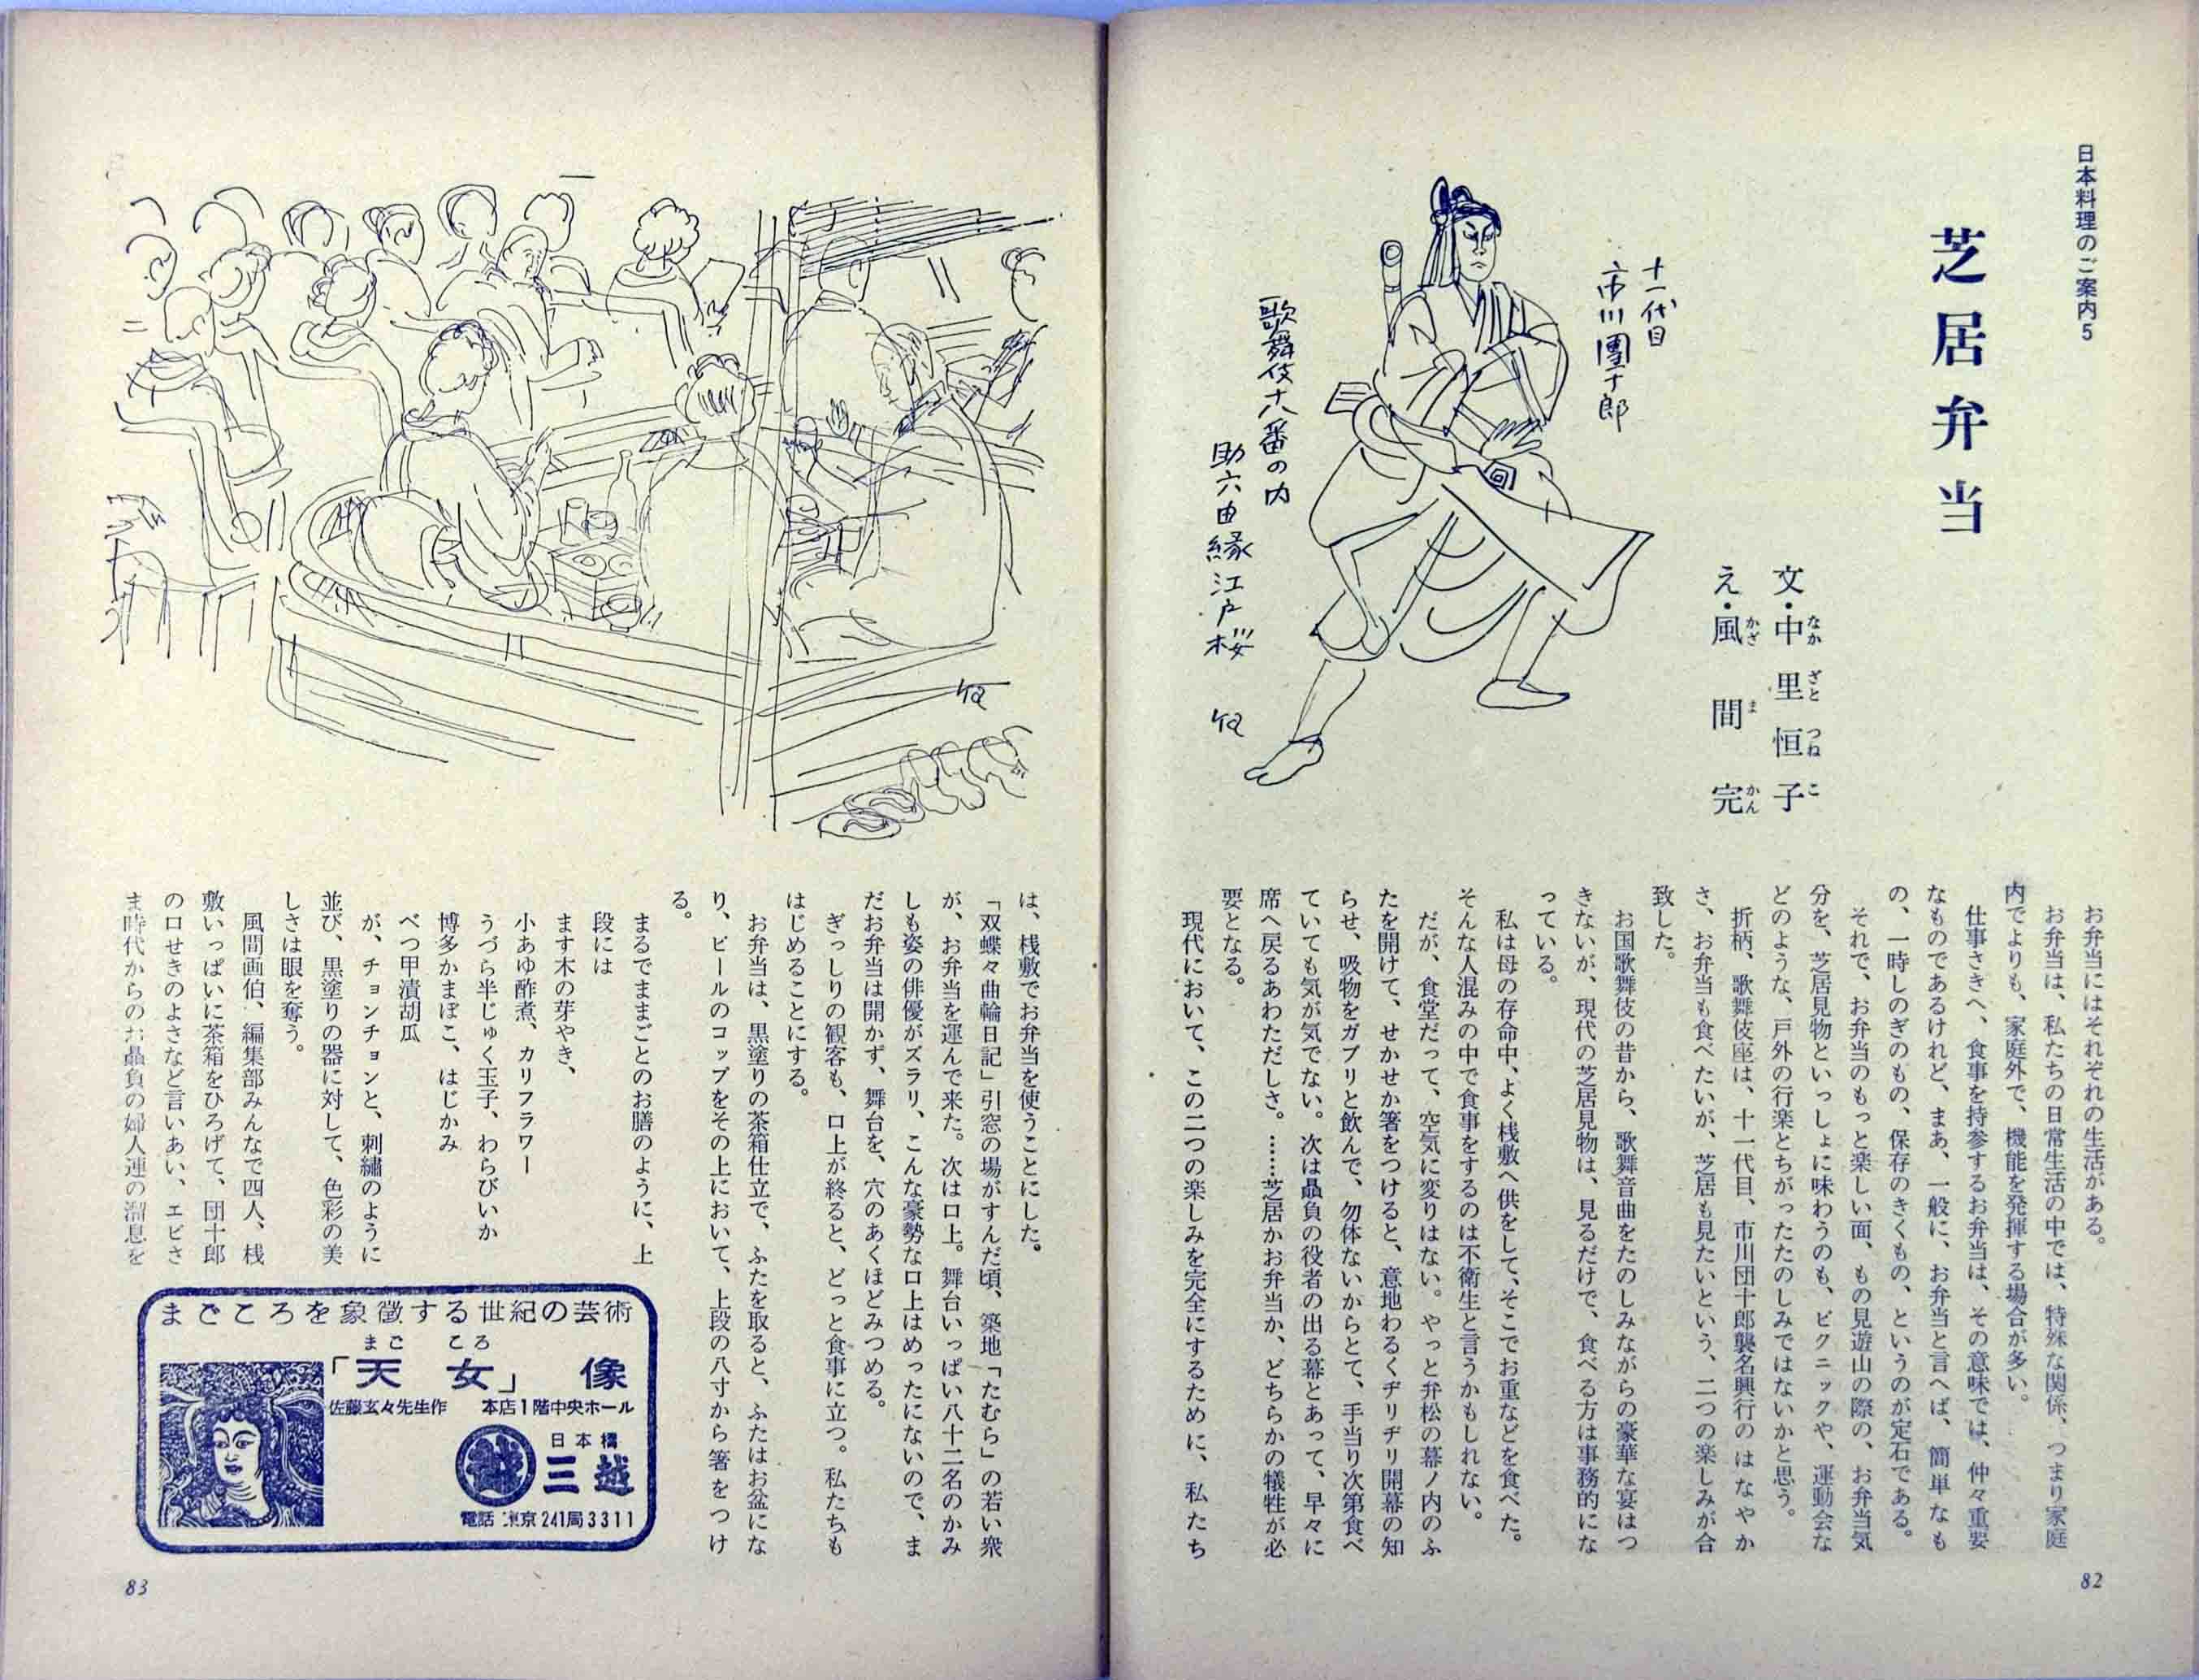 日本料理のご案内5
芝居弁当
文・中里恒子
なかざとつねこ
え・風間完
かざまかん
十一代目
市川團十郎
歌舞伎十八番の内
助六由縁江戸桜
お弁当にはそれぞれの生活がある。
お弁当は、私たちの日常生活の中では、特殊な関係、つまり家庭
内でよりも、家庭外で、機能を発揮する場合が多い。
仕事さきへ、食事を持参するお弁当は、その意味では、仲々重要
なものであるけれど、まあ、一般に、お弁当と言へば、簡単なも
の、一時しのぎのもの、保存のきくもの、というのが定石である。
それで、お弁当のもっと楽しい面、もの見遊山の際の、お弁当気
分を、芝居見物といっしょに味わうのも、ピクニックや、運動会な
どのような、戸外の行楽とちがったたのしみではないかと思う。
折柄、歌舞伎座は、十一代目、市川団十郎襲名興行のはなやか
さ、お弁当も食べたいが、芝居も見たいという、二つの楽しみが合
致した。
お国歌舞伎の昔から、歌舞音曲をたのしみながらの豪華な宴はつ
きないが、現代の芝居見物は、見るだけで、食べる方は事務的にな
っている。
私は母の存命中、よく桟敷へ供をして、そこでお重などを食べた。
そんな人混みの中で食事をするのは不衛生と言うかもしれない。
だが、食堂だって、空気に変りはない。やっと弁松の幕ノ内のふ
たを開けて、せかせか箸をつけると、意地わるくヂリヂリ開幕の知
らせ、吸物をガブリと飲んで、勿体ないからとて、手当り次第食べ
ていても気が気でない。次は贔負の役者の出る幕とあって、早々に
席へ戻るあわただしさ。……芝居かお弁当か、どちらかの犠牲が必
要となる。
現代において、この二つの楽しみを完全にするために、私たち
82
は、桟敷でお弁当を使うことにした。
「双蝶々曲輪日記」引窓の場がすんだ頃、築地「たむら」の若い衆
が、お弁当を運んで来た。次は口上。舞台いっぱい八十二名のかみ
しも姿の俳優がズラリ、こんな豪勢な口上はめったにないので、ま
だお弁当は開かず、舞台を、穴のあくほどみつめる。
ぎっしりの観客も、口上が終ると、どっと食事に立つ。私たちも
はじめることにする。
お弁当は、黒塗りの茶箱仕立で、ふたを取ると、ふたはお盆にな
り、ビールのコップをその上において、上段の八寸から箸をつけ
る。
まるでままごとのお膳のように、上
段には
ます木の芽やき、
小あゆ酢煮、カリフラワー
うづら半じゅく玉子、わらびいか
博多かまぼこ、はじかみ
べつ甲漬胡瓜
が、チョンチョンと、刺繍のように
並び、黒塗りの器に対して、色彩の美
しさは眼を奪う。
風間画伯、編集部みんなで四人、桟
敷いっぱいに茶箱をひろげて、団十郎
の口せきのよさなど言いあい、エビさ
ま時代からのお贔負の婦人連の溜息を
まごころを象徴する世紀の芸術
まごころ
「天女」像
佐藤玄々先生作 本店1階中央ホール
日本橋
三越
電話 東京241局3311
83